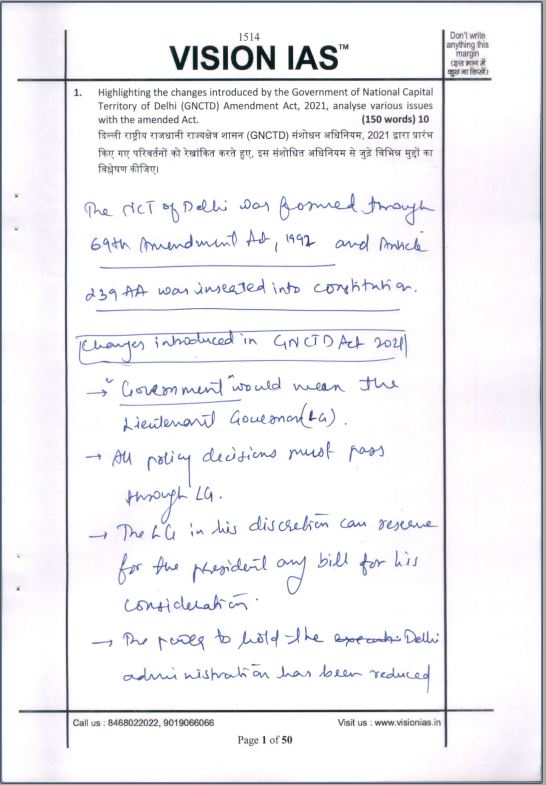 1514
VISION IAS™
Don't write
anything this
margin
(इस भाग में
कुछ ना लिखें)
1. Highlighting the changes introduced by the Government of National Capital
Territory of Delhi (GNCTD) Amendment Act, 2021, analyse various issues
with the amended Act. (150 words) 10
दिल्ली राष्ट्रीय राजधानी राज्यक्षेत्र शासन (GNCTD) संशोधन अधिनियम, 2021 द्वारा प्रारंभ
किए गए परिवर्तनों को रेखांकित करते हुए, इस संशोधित अधिनियम से जुड़े विभिन्न मुद्दों का
विश्लेषण कीजिए।
The NCT of Delhi was formed through
69th Amendment Act, 1992 and Article
239 AA was inserted into constitution.
Changes introduced in GNCTD Act 2021
→ "Government" would mean the
Lieutenant Governor (LG).
→ All policy decisions must pass
through LG.
→ The LG in his discretion can reserve
for the president any bill for his
consideration.
→ The power to hold the Delhi
administration has been reduced
Call us : 8468022022, 9019066066 Visit us : www.visionias.in
Page 1 of 50